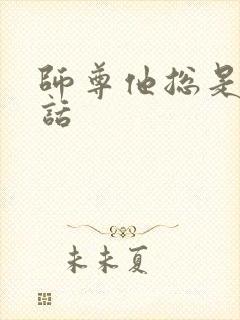 師尊他總是
話
未未夏